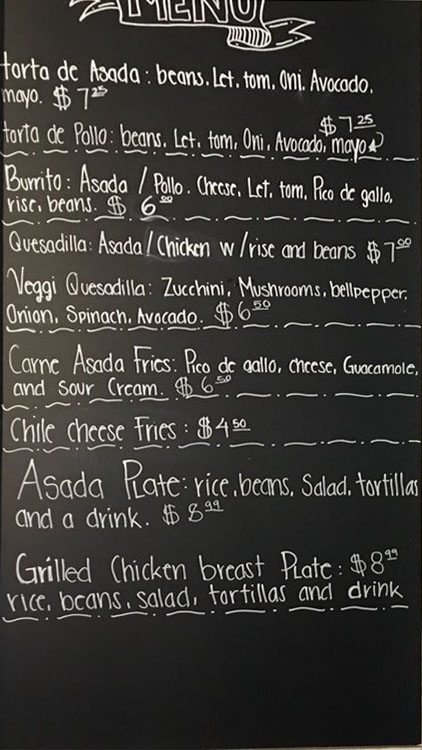 MENU
torta de Asada: beans. Let. tom. Oni. Avocado.
mayo. $7.25
$7.25
torta de Pollo: beans, Let, tom, Oni, Avocado, mayo
Burrito: Asada / Pollo. Cheese, Let, tom, Pico de gallo,
rise, beans. $ 6.00
Quesadilla: Asada/Chicken w/rise and beans $7.00
Veggi Quesadilla: Zucchini, Mushrooms, bellpepper,
Onion, Spinach, Avocado. $6.50
Carne Asada Fries: Pico de gallo, cheese, Guacamole,
and Sour Cream. $6.50
Chile cheese Fries: $4.50
Asada Plate: rice, beans, Salad, tortillas
and a drink. $8.99
Grilled Chicken breast Plate: $8.99
rice, beans, salad, tortillas and drink